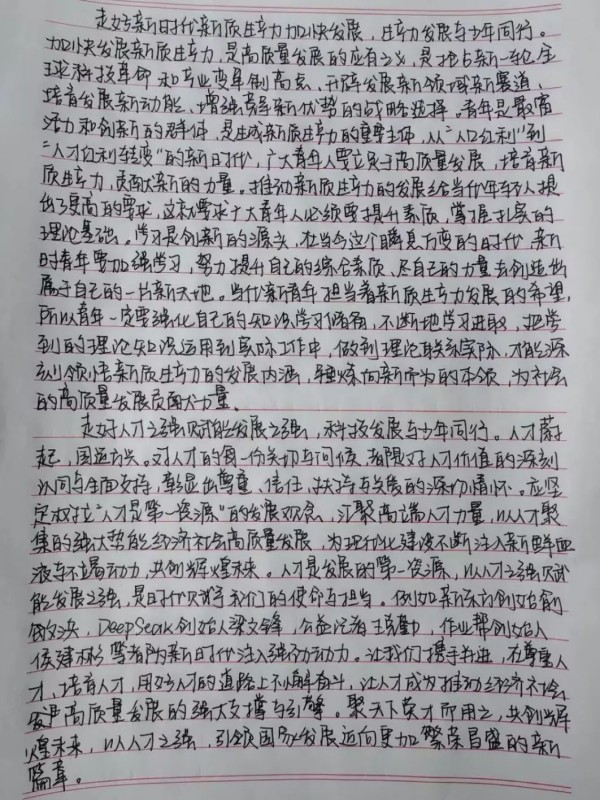 走好新时代新质生产力加快发展，生产力发展与少年同行。
加快发展新质生产力，是高质量发展的应有之义，是抢占新一轮全
球科技革命和产业变革制高点、开辟发展新领域新赛道、
培育发展新动能、增强竞争新优势的战略选择。青年是最富
活力和创新的群体，是生成新质生产力的重要主体，从“人口红利”到
“人才红利转变”的新时代，广大青年人要立足于高质量发展，培育新
质生产力，贡献新的力量。推动新质生产力的发展给当代年轻人提
出了更高的要求，这就要求广大青年人必须要提升素质，掌握扎实的
理论基础。学习是创新的源头，在当今这个瞬息万变的时代，新
时青年要加强学习，努力提升自己的综合素质，尽自己的力量去创造出
属于自己的一片新天地。当代新青年担当着新质生产力发展的希望，
所以青年一定要强化自己的知识学习储备，不断地学习进取，把学
到的理论知识运用到实际工作中，做到理论联系实际，才能深
刻领悟新质生产力的发展内涵，锤炼向新而为的本领，为社会
的高质量发展贡献力量。
走好人才之强赋能发展之强，科技发展与少年同行。人才蔚
起，国运方兴。对人才的每一份关切与问候，都限对人才价值的深刻
认同与全面支持，彰显出尊重、信任、扶持与关爱的深切情怀。应坚
定树立“人才是第一资源”的发展观念，汇聚高端人才力量，以人才聚
集的强大势能经济社会高质量发展，为现代化建设不断注入新鲜血
液与不竭动力，共创辉煌未来。人才是发展的第一资源，以人才之强赋
能发展之强，是时代赋予我们的使命与担当。例如新东方创始俞
敏洪，DeepSeak创始人梁文锋，公益记者王克勤，作业帮创始人
侯建彬等都为新时代注入强劲动力。让我们携手并进，在尊重人
才、培育人才，用好人才的道路上不懈奋斗，让人才成为推动经济社会
高质量发展的强大支撑与引擎。聚天下英才而用之，共创辉
煌未来，以人才之强，引领国家发展迈向更加繁荣昌盛的新
篇章。